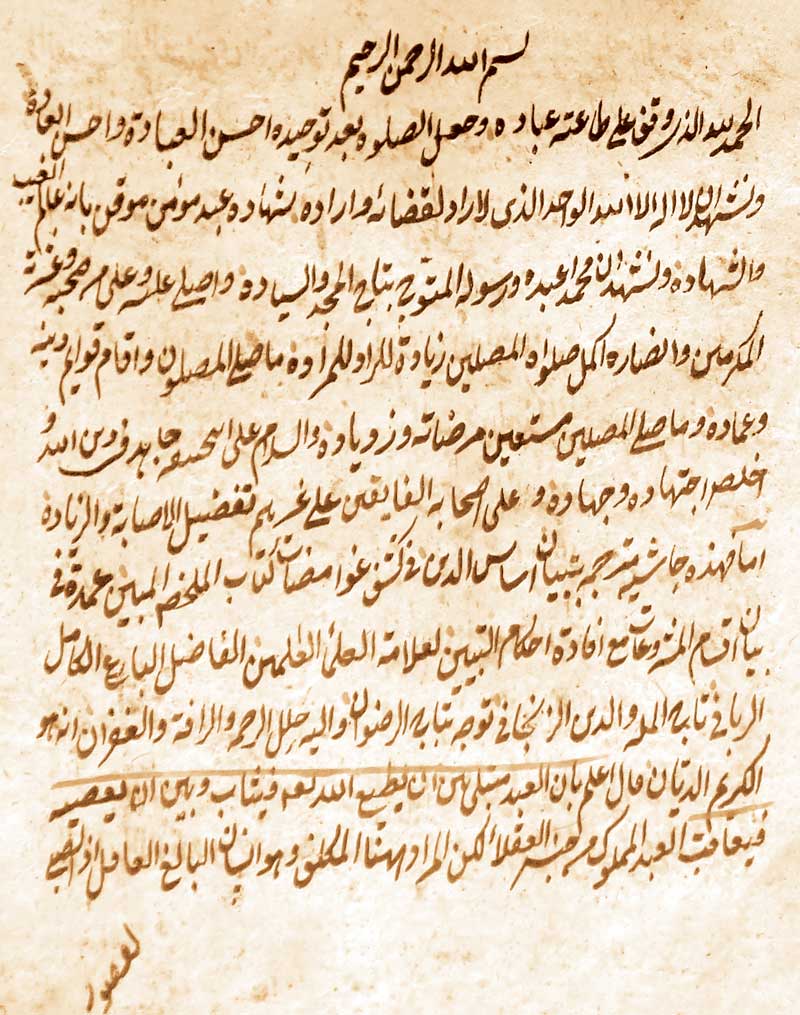 بسم الله الرحمن الرحيم
الحمد لله الذي وفق على طاعته عباده وجعل الصلوة بعد توحيده احسن العبادة واحسن العادة
ونشهد ان لا اله الا الله الواحد الذي لا راد لقضائه واراده شهادة عبد مؤمن موقن بانه عالم الغيب
والشهادة ونشهد ان محمدا عبده ورسوله المتوج بتاج المجد والسيادة واصلي عليه وعلى صحبه وعترته
المكرمين وانصاره اكمل صلواة المصلين زيادة ما صلى المصلون واقام قوايم دينه
وعماده وما صلى المصلين مرضاته والسلام على جاهد في دين الله و
اخلص اجتهاده وجهاده وعلى اصحابه الفايقين على غيرهم تفضيل الاصابة والزيادة
اما فهذه حاشية مترجمة بتبيان اساس الدين في كشف غوامضات كتاب الملخص المبين عمدة في
بيان اقسام المشروعات مع افادة احكام التبيين لعلامة العلى العلمين الفاضل البارع الكامل
الرباني تابه المله والدين الزنجاني توجه بتابه الرضوان واليه حلل الرحمه والرافة والغفران انه هو
الكريم الديان قال اعلم بان العبد مبتلى بين ان يطيع الله تعه فيثاب وبين ان يعصيه
فيعاقب العبد المملوك من جنس العقلاء لكن المراد ههنا المكلف وهو انسان البالغ العاقل اذ الصبي